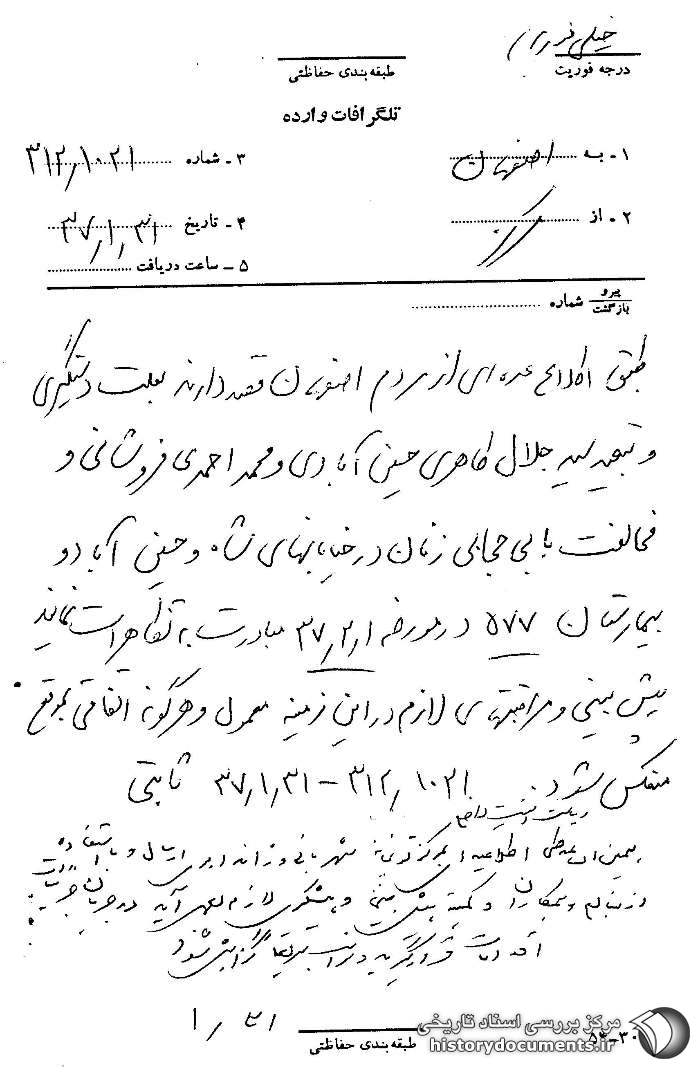 خیلی فوری
درجه فوریت
طبقه‌بندی حفاظتی
تلگرافات وارده
۱ - به اصفهان
۳ - شماره ۳۱۲/۱۰۲۱
۲ - از مرکز
۴ - تاریخ ۳۷/۱/۳۱
۵ - ساعت دریافت
پیرو
بازگشت
شماره
طبق اطلاع عده‌ای از مردم اصفهان قصد دارند بعلت دستگیری
و تبعید سید جلال طاهری حسین آبادی و محمد احمدی فروشانی و
مخالفت با بی حجابی زنان در خیابانهای شاه و حسین آباد و
بیمارستان ۵۷۷ در مورخه ۳۷/۲/۱ مبادرت به تظاهرات نمایند
پیش بینی و مراقبتهای لازم در این زمینه معمول و هرگونه اتفاقی بموقع
منعکس شود. ۳۱۲/۱۰۲۱ - ۳۷/۱/۳۱ ثابتی
اطلاعیه شهربانی و ژاندارمری ارسال و با استفاده
از منابع و همکاران و کمیته پیش بینی و پیشگیری لازم بعمل آید در جریان
اقدامات قرار گیرید و مراتب گزارش شود
۳۱/۱
طبقه‌بندی حفاظتی
۵۴-۳۰
مرکز بررسی اسناد تاریخی
historydocuments.ir